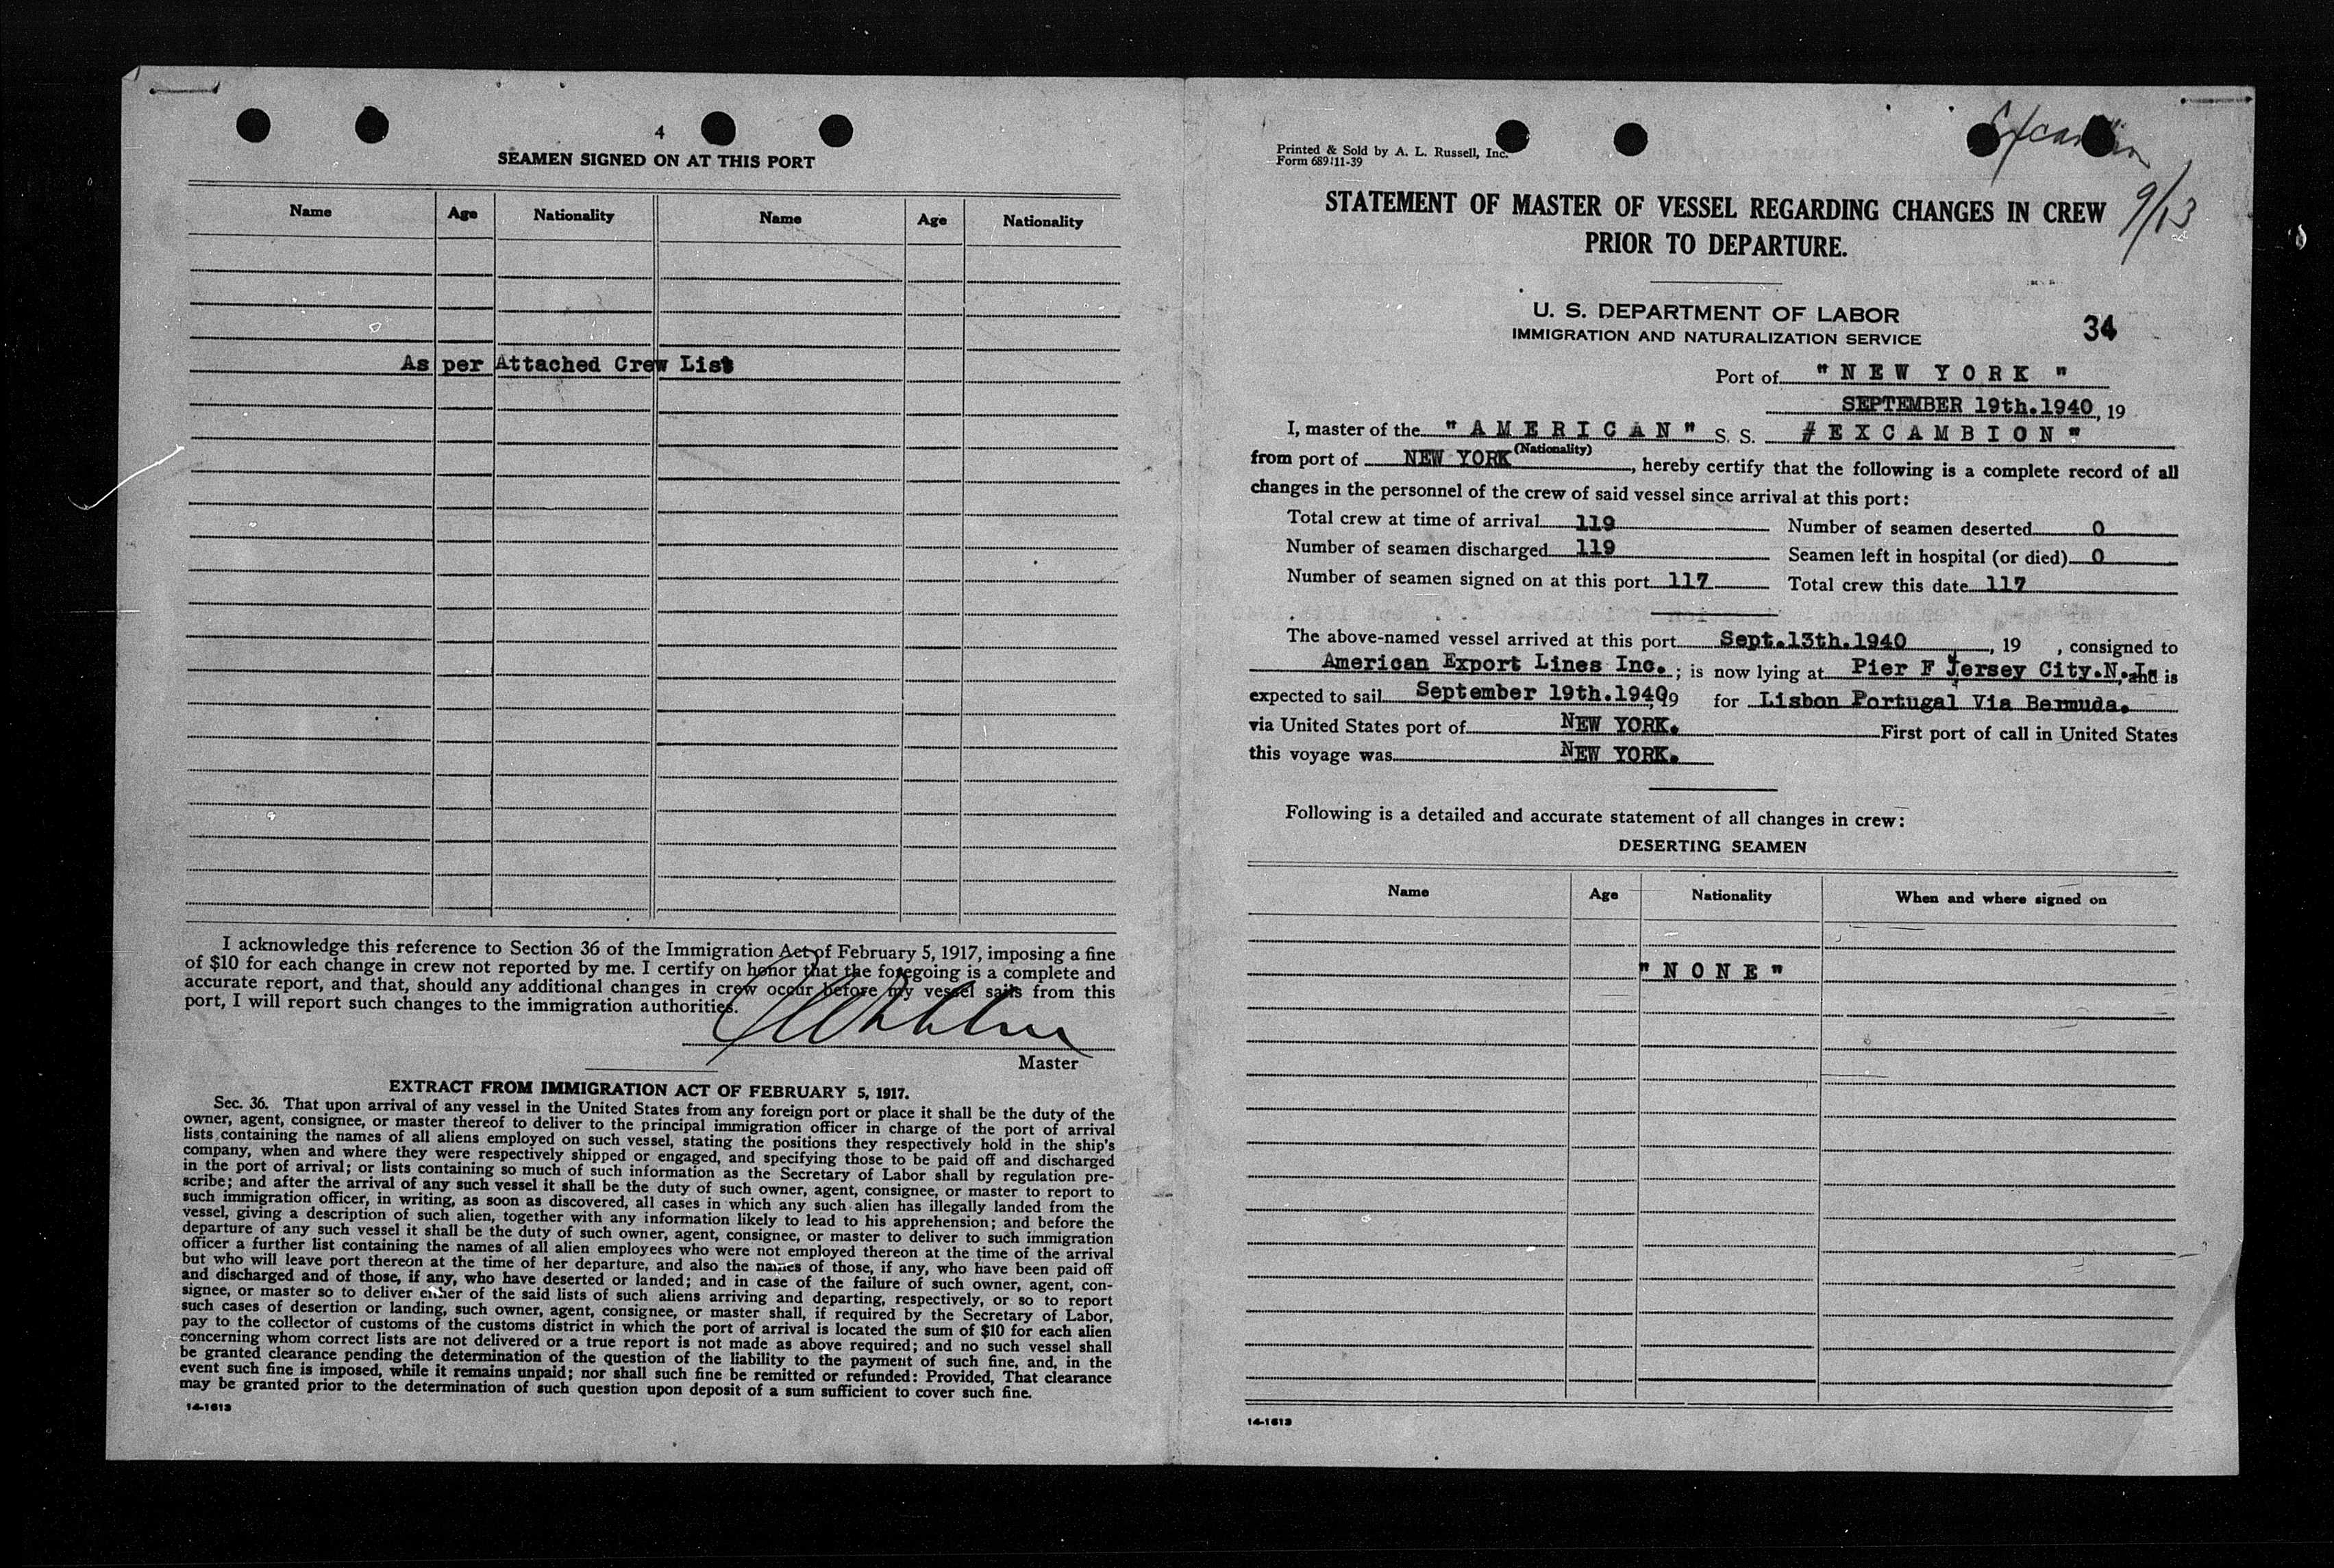 4
SEAMEN SIGNED ON AT THIS PORT
Name Age Nationality Name Age Nationality
As per Attached Crew List
I acknowledge this reference to Section 36 of the Immigration Act of February 5, 1917, imposing a fine
of $10 for each change in crew not reported by me. I certify on honor that the foregoing is a complete and
accurate report, and that, should any additional changes in crew occur before my vessel sails from this
port, I will report such changes to the immigration authorities.
Master
EXTRACT FROM IMMIGRATION ACT OF FEBRUARY 5, 1917.
Sec. 36. That upon arrival of any vessel in the United States from any foreign port or place it shall be the duty of the
owner, agent, consignee, or master thereof to deliver to the principal immigration officer in charge of the port of arrival
lists containing the names of all aliens employed on such vessel, stating the positions they respectively hold in the ship's
company, when and where they were respectively shipped or engaged, and specifying those to be paid off and discharged
in the port of arrival; or lists containing so much of such information as the Secretary of Labor shall by regulation pre-
scribe; and after the arrival of any such vessel it shall be the duty of such owner, agent, consignee, or master to report to
such immigration officer, in writing, as soon as discovered, all cases in which any such alien has illegally landed from the
vessel, giving a description of such alien, together with any information likely to lead to his apprehension; and before the
departure of any such vessel it shall be the duty of such owner, agent, consignee, or master to deliver to such immigration
officer a further list containing the names of all alien employees who were not employed thereon at the time of the arrival
but who will leave port thereon at the time of her departure, and also the names of those, if any, who have been paid off
and discharged and of those, if any, who have deserted or landed; and in case of the failure of such owner, agent, con-
signee, or master so to deliver either of the said lists of such aliens arriving and departing, respectively, or so to report
such cases of desertion or landing, such owner, agent, consignee, or master shall, if required by the Secretary of Labor,
pay to the collector of customs of the customs district in which the port of arrival is located the sum of $10 for each alien
concerning whom correct lists are not delivered or a true report is not made as above required; and no such vessel shall
be granted clearance pending the determination of the question of the liability to the payment of such fine, and, in the
event such fine is imposed, while it remains unpaid; nor shall such fine be remitted or refunded: Provided, That clearance
may be granted prior to the determination of such question upon deposit of a sum sufficient to cover such fine.
14-1613
Printed & Sold by A. L. Russell, Inc.
Form 689 11-39
9/13
STATEMENT OF MASTER OF VESSEL REGARDING CHANGES IN CREW
PRIOR TO DEPARTURE.
U. S. DEPARTMENT OF LABOR
IMMIGRATION AND NATURALIZATION SERVICE
34
Port of "NEW YORK"
SEPTEMBER 19th.1940, 19
I, master of the "AMERICAN" S. S. #EXCAMBION"
(Nationality)
from port of NEW YORK, hereby certify that the following is a complete record of all
changes in the personnel of the crew of said vessel since arrival at this port:
Total crew at time of arrival 119 Number of seamen deserted 0
Number of seamen discharged 119 Seamen left in hospital (or died) 0
Number of seamen signed on at this port 117 Total crew this date 117
The above-named vessel arrived at this port Sept.13th.1940, 19 , consigned to
American Export Lines Inc. ; is now lying at Pier F Jersey City.N.J. and is
expected to sail September 19th.1940, 19 for Lisbon Portugal Via Bermuda.
via United States port of NEW YORK. First port of call in United States
this voyage was NEW YORK.
Following is a detailed and accurate statement of all changes in crew:
DESERTING SEAMEN
Name Age Nationality When and where signed on
"NONE"
14-1613